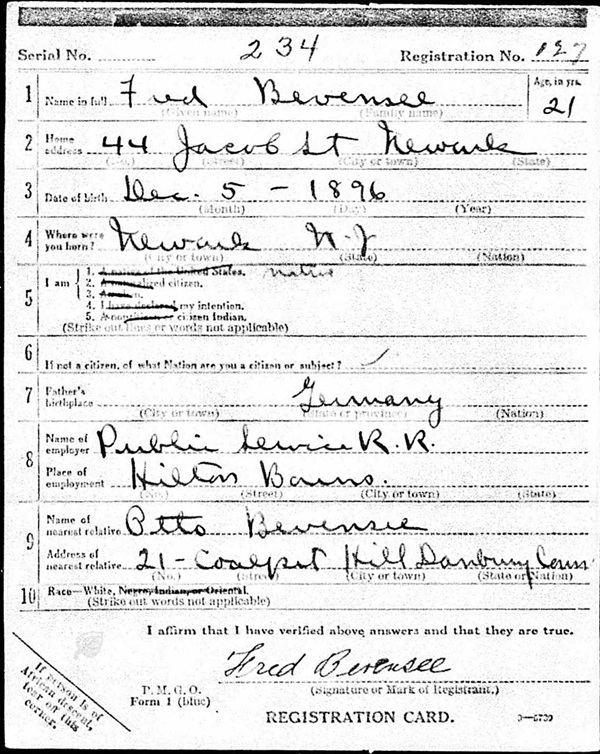 Serial No. 234 Registration No. 127
1 Name in full Fred Bevensee Age, in yrs. 21
(Given name) (Family name)
2 Home address 44 Jacob St Newark
(No.) (Street) (City or town) (State)
3 Date of birth Dec. 5 - 1896
(Month) (Day) (Year)
4 Where were you born? Newark N.J
(City or town) (State) (Nation)
5 I am 1. A native of the United States. native
2. A naturalized citizen.
3. An alien.
4. I have declared my intention.
5. A noncitizen or citizen Indian.
(Strike out lines or words not applicable)
6 If not a citizen, of what Nation are you a citizen or subject?
7 Father's birthplace Germany
(City or town) (State or province) (Nation)
8 Name of employer Public Service R.R.
Place of employment Hilton Barns.
(No.) (Street) (City or town) (State)
9 Name of nearest relative Otto Bevensee
Address of nearest relative 21 - Coalpit Hill Danbury Conn
(No.) (Street) (City or town) (State or Nation)
10 Race—White, Negro, Indian, or Oriental.
(Strike out words not applicable)
I affirm that I have verified above answers and that they are true.
Fred Bevensee
(Signature or Mark of Registrant.)
P. M. G. O.
Form 1 (blue)
REGISTRATION CARD.
3—6739
If person is of
African descent,
tear off this
corner.